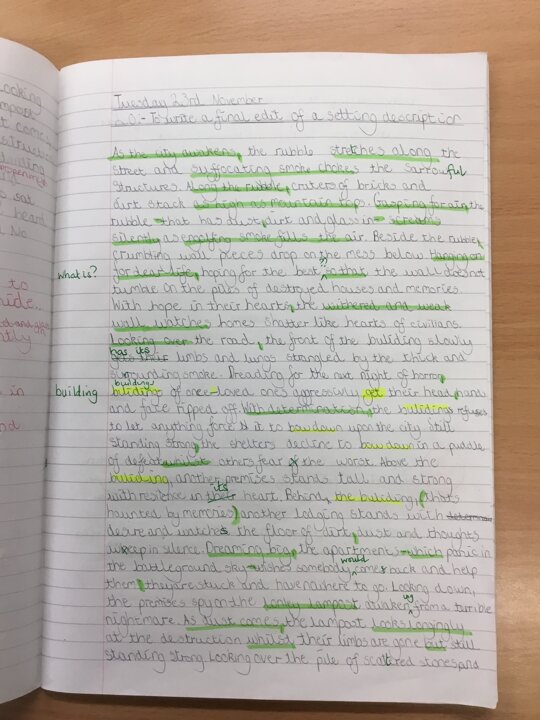 Tuesday 23rd November
L.O:- To write a final edit of a setting description
As the city awakens, the rubble stretches along the
street and suffocating smoke chokes the sarrowful
structures. Along the rubble, craters of bricks and
dirt stack as high as mountain tops. Gasping for air, the
rubble - that has dust, dirt and glass in - screams
silently as erupting smoke fills the air. Beside the rubble,
crumbling wall pieces drop on the mess below hanging on
what is?
for dear life, hoping for the best in that the wall doesnt
tumble. On the piles of destroyed houses and memories.
With hope in their hearts, the withered and weak
wall watches homes shatter like hearts of civilians.
Looking over the road, the front of the buliding slowly
has its
gets their limbs and lungs strangled by the thick and
surrounding smoke. Dreading for the next night of horror,
building
buildings
buliding of once-loved ones aggressively get their head, hand
and face ripped off. With determination, the buliding refuses
to let anything force it to bow down upon the city. Still
standing strong, the shelters decline to bow down in a puddle
of defeat whilst others fear the worst. Above the
buliding, another premises stands tall and strong
its
with resilience in their heart. Behind the buliding, (thats
haunted by memories) another lodging stands with determin
desire and watches the floor of dirt, dust and thoughts
weep in silence. Dreaming big, the apartment - which panic in
would
the battleground sky - wishes somebody comes back and help
them, they're stuck and have nowhere to go. Looking down,
ing
the premises spy on the lonely lampost awaken from a terrible
nightmare. As dust comes, the lampost looks longingly
at the destruction whilst their limbs are gone but still
standing strong. Looking over the pile of scattered stones and